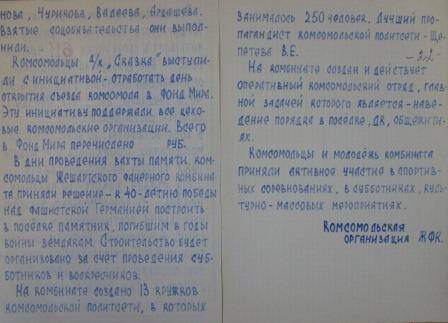 нова, Чурикова, Вадеева, Ардашева.
Взятые соцобязательства они выпол-
нили.
Комсомольцы д/к „Сказка" выступи-
ли с инициативой - отработать день
открытия съезда комсомола в Фонд Мира.
Эту инициативу поддержали все цехо-
вые комсомольские организации. Всего
в Фонд Мира перечислено руб.
В дни проведения вахты памяти ком-
сомольцы Жешартского фанерного комбина-
та приняли решение - к 40-летию победы
над фашистской Германией построить
в посёлке памятник, погибшим в годы
войны землякам. Строительство будет
организовано за счёт проведения суб-
ботников и воскресников.
На комбинате создано 13 кружков
комсомольской политсети, в которых
занималось 250 человек. Лучший про-
пагандист комсомольской политсети - Ще-
петева В.Е.
На комбинате создан и действует
оперативный комсомольский отряд, глав-
ной задачей которого является - наве-
дение порядка в посёлке, ДК, общежити-
ях.
Комсомольцы и молодёжь комбината
приняли активное участие в спортив-
ных соревнованиях, в субботниках, куль-
турно-массовых мероприятиях.
Комсомольская
организация ЖФК.